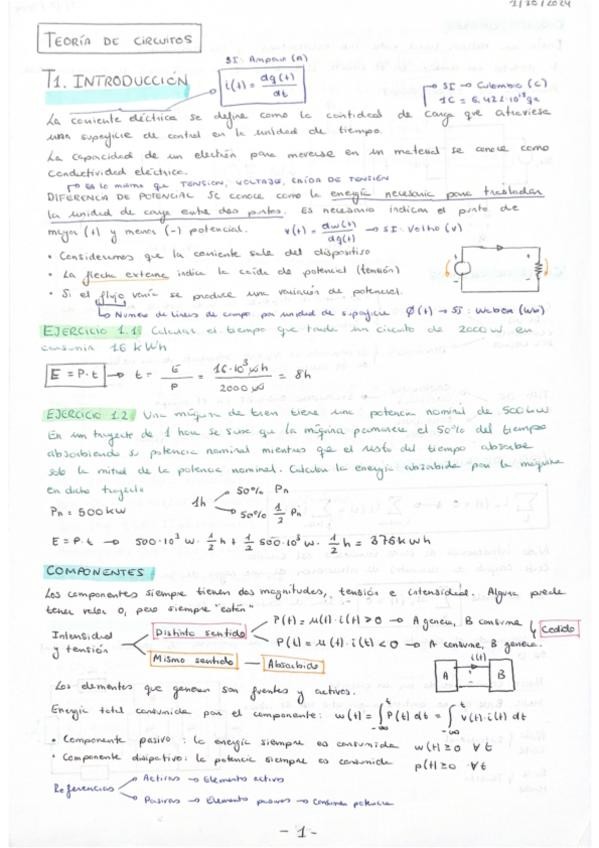 1/10/2024
TEORÍA DE CIRCUITOS
T1. INTRODUCCIÓN
SI: Amperio (A)
i(t) = dq(t)/dt
SI → Culombio (C)
1C = 6,422·10¹⁸ qe
La corriente eléctrica se define como la cantidad de carga que atraviesa
una superficie de control en la unidad de tiempo.
La capacidad de un electrón para moverse en un material se conoce como
conductividad eléctrica.
Es lo mismo que TENSIÓN, VOLTAJE, CAÍDA DE TENSIÓN
DIFERENCIA DE POTENCIAL Se conoce como la energía necesaria para trasladar
la unidad de carga entre dos puntos. Es necesario indicar el punto de
mayor (+) y menor (-) potencial. v(t) = dw(t)/dq(t) → SI: Voltio (V)
• Consideramos que la corriente sale del dispositivo
• La flecha externa indica la caída de potencial (tensión)
• Si el flujo varía se produce una variación de potencial.
↳ Número de líneas de campo por unidad de superficie Ø(t) → SI: Weber (Wb)
+
-
EJERCICIO 1.1: Calcular el tiempo que tarda un circuito de 2000 W en
consumir 16 kWh
E = P·t → t = E/P = 16·10³ Wh/2000 W = 8h
EJERCICIO 1.2 Una máquina de tren tiene una potencia nominal de 500 kW
En un trayecto de 1 hora se sabe que la máquina permanece el 50% del tiempo
absorbiendo su potencia nominal mientras que el resto del tiempo absorbe
solo la mitad de la potencia nominal. Calcular la energía absorbida por la máquina
en dicho trayecto
Pn = 500 kW
1h
50% Pn
50% 1/2 Pn
E = P·t → 500·10³ W · 1/2 h + 1/2 500·10³ W · 1/2 h = 376 kWh
COMPONENTES
Los componentes siempre tienen dos magnitudes, tensión e intensidad. Alguna puede
tener valor 0, pero siempre "están"
Intensidad
y tensión
Distinto sentido
P(t) = u(t)·i(t) > 0 → A genera, B consume
P(t) = u(t)·i(t) < 0 → A consume, B genera.
Cedido
Mismo sentido → Absorbido
i(t)
A
+
-
B
Los elementos que generan son fuentes y activos.
Energía total consumida por el componente: w(t) = ∫_{-∞}^{t} P(t) dt = ∫_{-∞}^{t} v(t)·i(t) dt
• Componente pasivo: la energía siempre es consumida w(t) ≥ 0 ∀t
• Componente disipativo: la potencia siempre es consumida p(t) ≥ 0 ∀t
Referencias
Activas → Elemento activos
Pasivas → Elemento pasivos → Consumen potencia
- 1 -